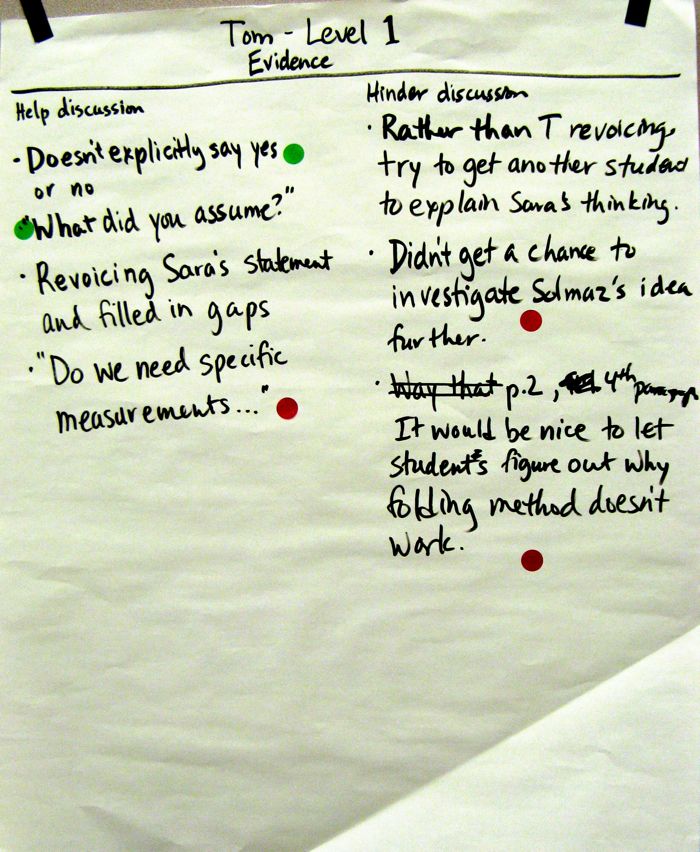 Tom - Level 1
Evidence
Help discussion
· Doesn't explicitly say yes
or no
· "What did you assume?"
· Revoicing Sara's statement
and filled in gaps
· "Do we need specific
measurements..."
Hinder discussion
· Rather than T revoicing,
try to get another student
to explain Sara's thinking.
· Didn't get a chance to
investigate Solmaz's idea
further.
· Way that p.2, 4th paragraph
It would be nice to let
students figure out why
folding method doesn't
work.